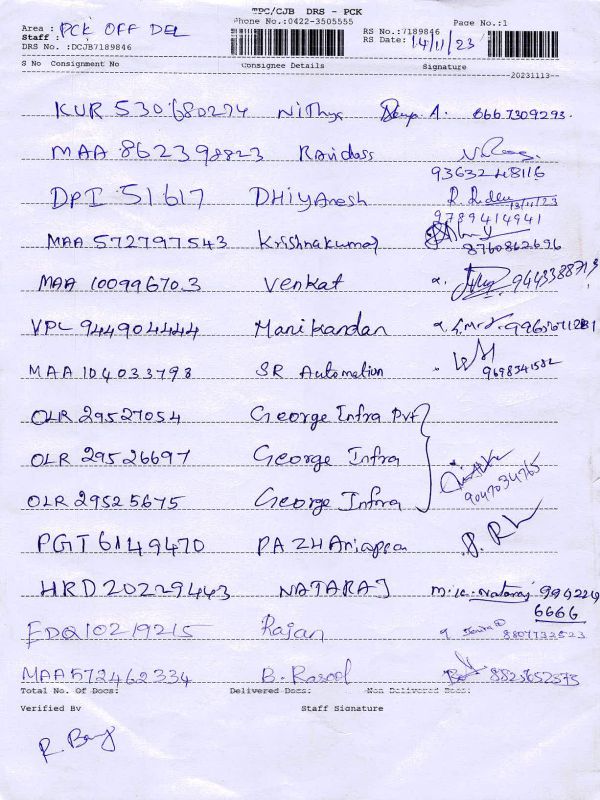 TPC/CJB DRS - PCK
Area : PCK OFF DEL Phone No.:0422-3505555 RS No.:7189846 Page No.:1
Staff : RS Date: 14/11/23
DRS No. :DCJB7189846
S No Consignment No Consignee Details Signature
20231113
KUR 530680274 Nithya A. 8667309293.
MAA 862398823 Ravidass
9363248116
DPI 51617 DHiyAnesh 13/11/23
9789414941
MAA 572797543 Krishnakumar 8760862696
MAA 100996703 Venkat
VPL 944904444 Manikandan
MAA 104033798 SR Automation 9698341582
OLR 29527054 George Infra Pvt
OLR 29526697 George Infra
OLR 29525675 George Infra 9047034765
PGT 6149470
HRD 20229443 NATARAJ M.K. Nataraj 994224
6666
EDQ10219215 Rajan 8807732523
MAA 572462334 B. Rasool 8825652373
Total No. Of Docs: Delivered Docs: Non Delivered Docs:
Verified By Staff Signature